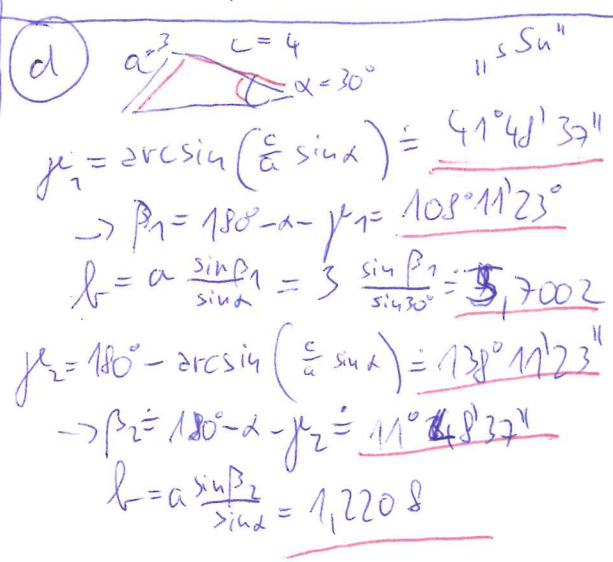 d a=3 c=4 α=30° „sSu"
γ₁ = arcsin(c/a sinα) ≐ 41°48'37"
→ β₁ = 180° - α - γ₁ = 108°11'23°
b = a sinβ₁/sinα = 3 sinβ₁/sin30° ≐ 5,7002
γ₂ = 180° - arcsin(c/a sinα) ≐ 138°11'23"
→ β₂ ≐ 180° - α - γ₂ ≐ 11°48'37"
b = a sinβ₂/sinα = 1,2208